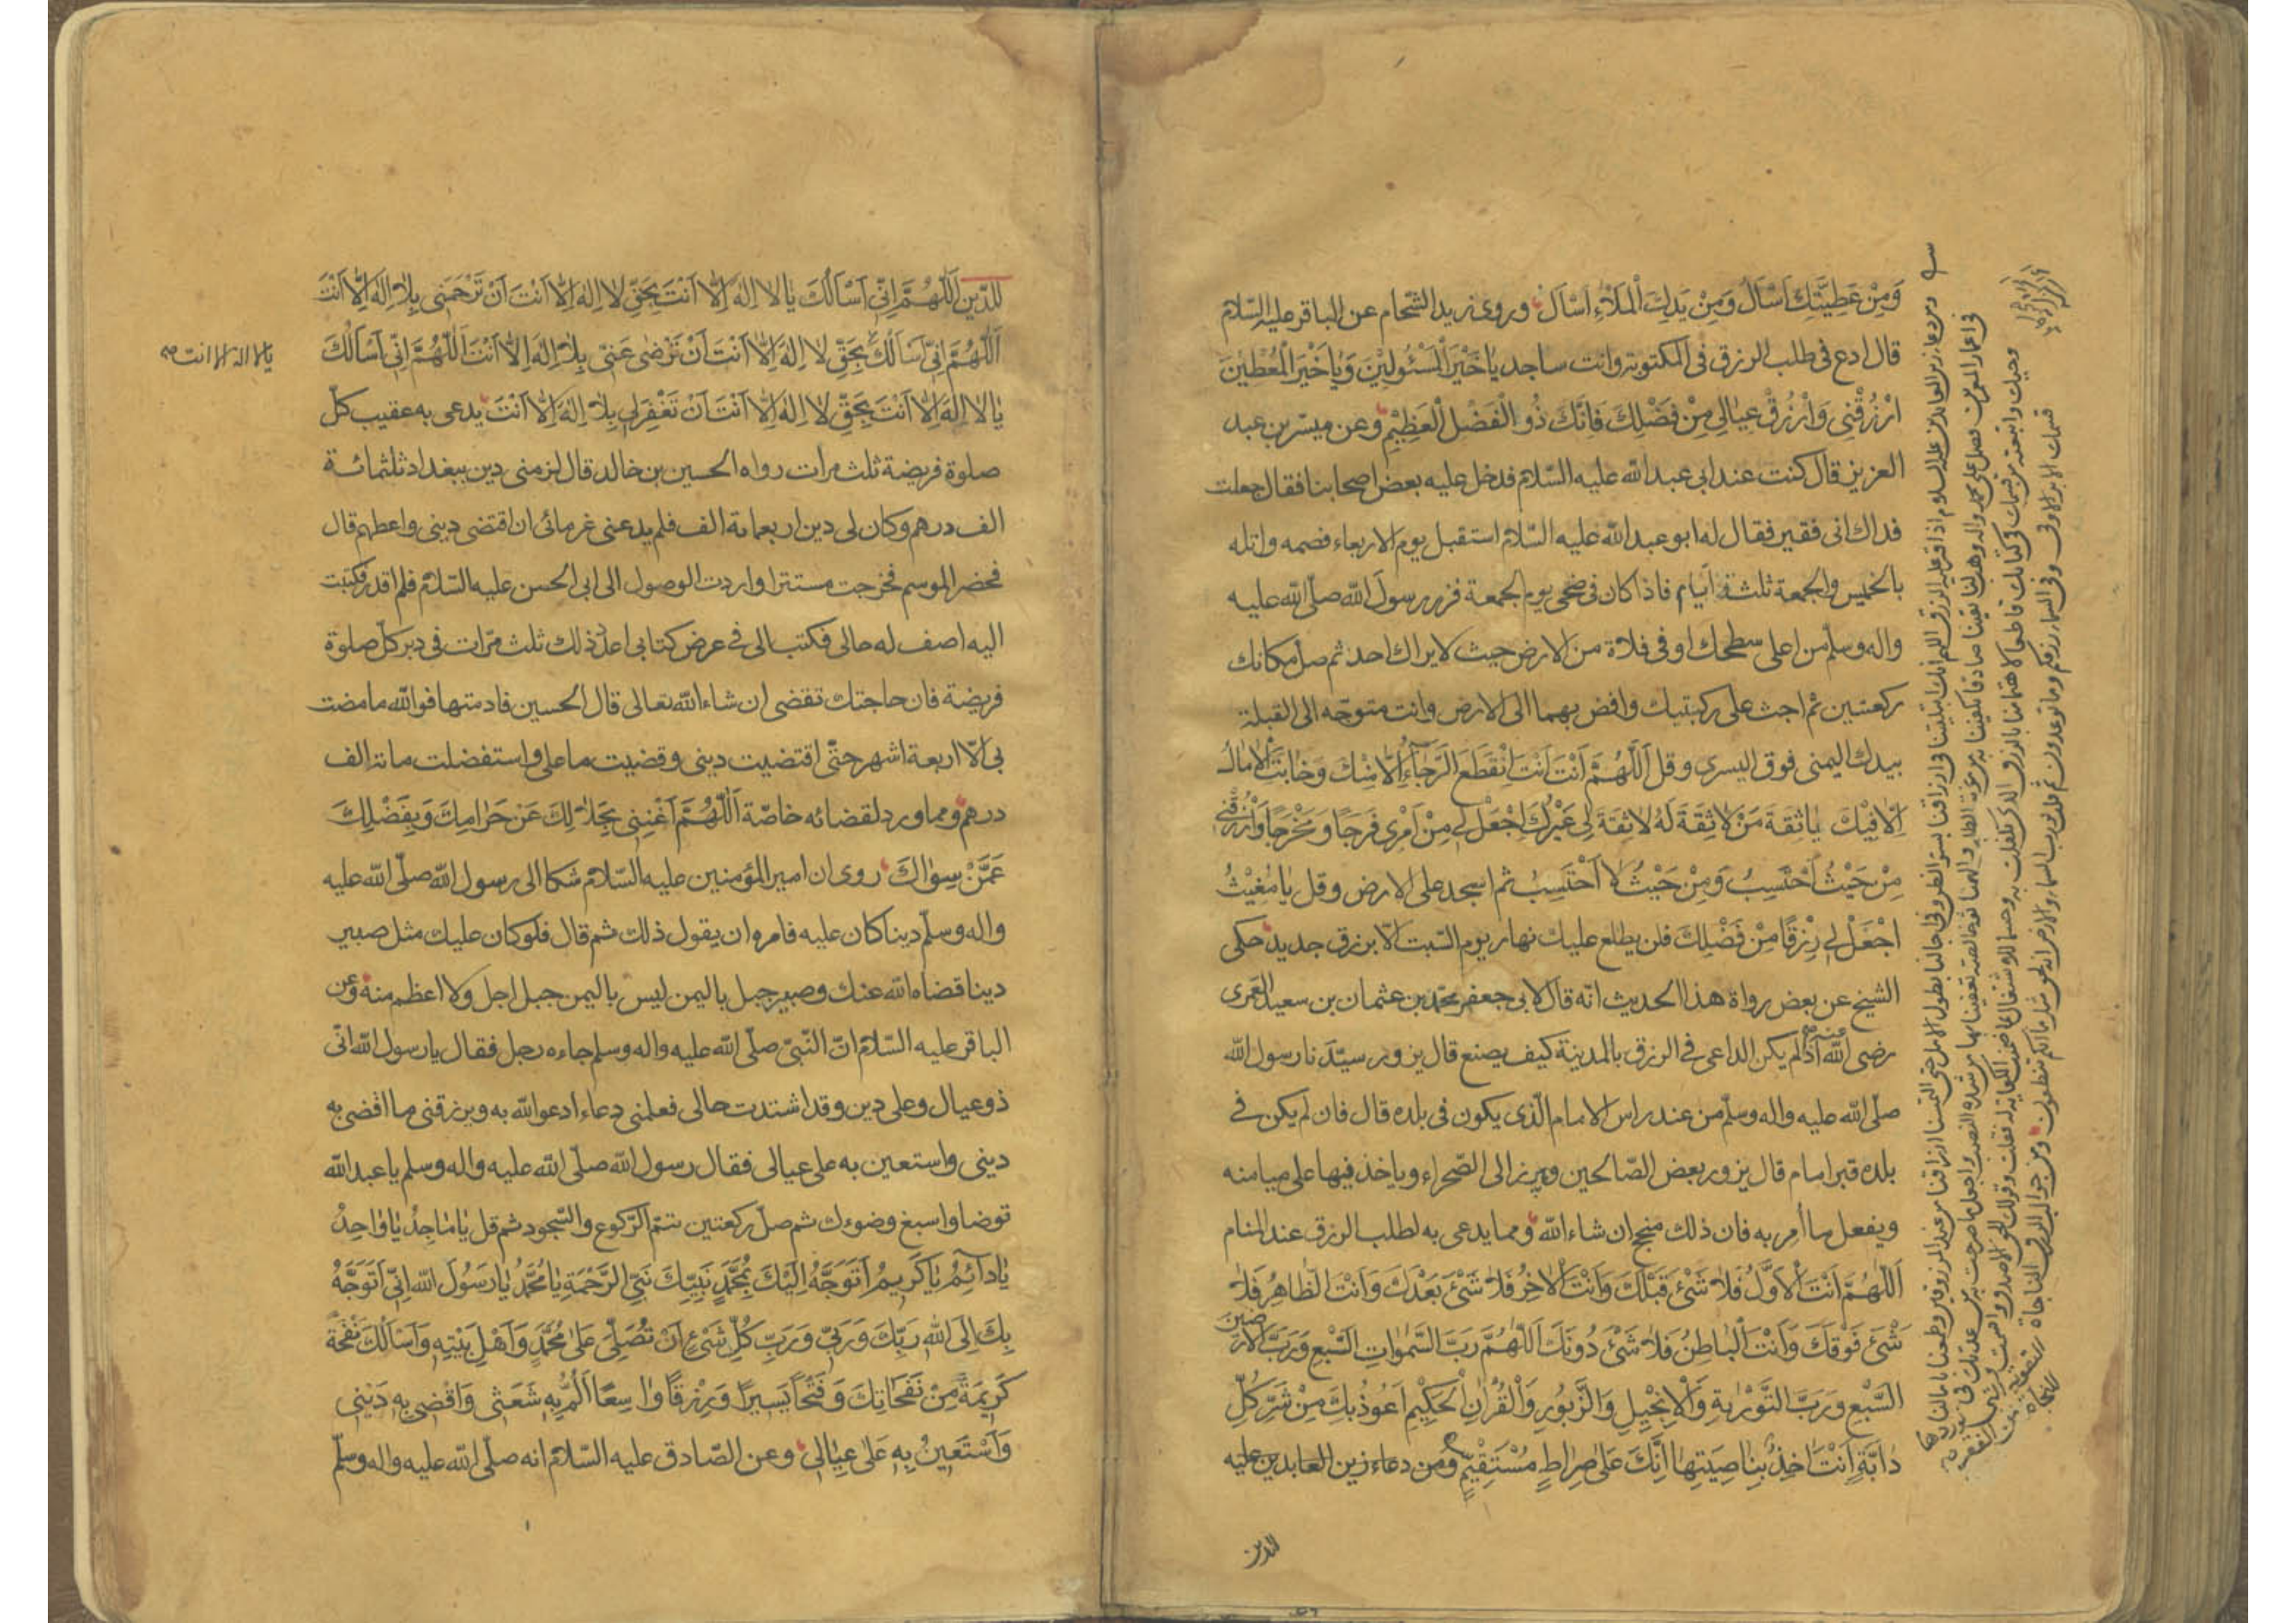 وَمِنْ عَطِيَّتِكَ اَسْاَلُ وَمِنْ يَدِكَ الْمَلْاءِ اَسْاَلُ وروى زيد الشحّام عن الباقر عليه السّلام
قال ادع فى طلب الرزق فى المكتوبة وانت ساجد يا خَيْرَ الْمَسْئُولِيْنَ وَيا خَيْرَ الْمُعْطِيْنَ
ارْزُقْنِى وَارْزُقْ عِيالِى مِنْ فَضْلِكَ فَاِنَّكَ ذُو الْفَضْلِ الْعَظِيْمِ وعن ميسّر بن عبد
العزيز قال كنت عند ابى عبد الله عليه السّلام فدخل عليه بعض اصحابنا فقال جعلت
فداك انى فقير فقال له ابو عبد الله عليه السّلام استقبل يوم الاربعاء فصمه واتله
بالخميس والجمعة ثلثة ايّام فاذا كان فى ضحى يوم الجمعة فزر رسول الله صلّى الله عليه
واله وسلّم من اعلى سطحك او فى فلاة من الارض حيث لا يراك احد ثم صل مكانك
ركعتين ثم اجث على ركبتيك وافض بهما الى الارض وانت متوجّه الى القبلة
بيدك اليمنى فوق اليسرى وقل اَللّهُمَّ اَنْتَ اَنْتَ اِنْقَطَعَ الرَّجاءُ اِلّا مِنْكَ وَخابَتِ الْامالُ
اِلّا فِيْكَ يا ثِقَةَ مَنْ لا ثِقَةَ لَهُ لا ثِقَةَ لِى غَيْرُكَ اِجْعَلْ لِى مِنْ اَمْرِى فَرَجًا وَمَخْرَجًا وَارْزُقْنِى
مِنْ حَيْثُ اَحْتَسِبُ وَمِنْ حَيْثُ لا اَحْتَسِبُ ثم اسجد على الارض وقل يا مُغِيْثُ
اجْعَلْ لِى رِزْقًا مِنْ فَضْلِكَ فلن يطلع عليك نهار يوم السّبت الّا برزق جديد حكى
الشيخ عن بعض رواة هذا الحديث انّه قال لابى جعفر محمّد بن عثمان بن سعيد العمرى
رضى الله عنه اذا لم يكن الداعى فى الرزق بالمدينة كيف يصنع قال يزور سيّدنا رسول الله
صلّى الله عليه واله وسلّم من عند راس الامام الّذى يكون فى بلده قال فان لم يكن فى
بلده قبر امام قال يزور بعض الصّالحين ويبرز الى الصّحراء وياخذ فيها على ميامنه
ويفعل ما اُمِر به فان ذلك منجح ان شاء الله ومما يدعى به لطلب الرزق عند المنام
اَللّهُمَّ اَنْتَ الْاَوَّلُ فَلا شَىْءَ قَبْلَكَ وَاَنْتَ الْاخِرُ فَلا شَىْءَ بَعْدَكَ وَاَنْتَ الظّاهِرُ فَلا
شَىْءَ فَوْقَكَ وَاَنْتَ الْباطِنُ فَلا شَىْءَ دُونَكَ اَللّهُمَّ رَبَّ السَّمواتِ السَّبْعِ وَرَبَّ الْارَضينَ
السَّبْعِ وَرَبَّ التَّوْريةِ وَالْاِنْجِيْلِ وَالزَّبُوْرِ وَالْقُرْانِ الْحَكِيْمِ اَعُوْذُ بِكَ مِنْ شَرِّ كُلِّ
دابَّةٍ اَنْتَ اخِذٌ بِناصِيَتِها اِنَّكَ عَلى صِراطٍ مُسْتَقِيْمٍ ومن دعاء زين العابدين عليه
للدين
للدّين اَللّهُمَّ اِنّى اَسْاَلُكَ يا لا اِلهَ اِلّا اَنْتَ بِحَقِّ لا اِلهَ اِلّا اَنْتَ اَنْ تَرْحَمَنِى بِلا اِلهَ اِلّا اَنْتَ
اَللّهُمَّ اِنّى اَسْاَلُكَ بِحَقِّ لا اِلهَ اِلّا اَنْتَ اَنْ تَرْضى عَنّى بِلا اِلهَ اِلّا اَنْتَ اَللّهُمَّ اِنّى اَسْاَلُكَ
يا لا اله الا انت صح
يا لا اِلهَ اِلّا اَنْتَ بِحَقِّ لا اِلهَ اِلّا اَنْتَ اَنْ تَغْفِرَ لِى بِلا اِلهَ اِلّا اَنْتَ يدعى به عقيب كلّ
صلوة فريضة ثلث مرات رواه الحسين بن خالد قال لزمنى دين ببغداد ثلثمائة
الف درهم وكان لى دين اربعماية الف فلم يدعنى غرمائى ان اقتضى دينى واعطيهم قال
فحضر الموسم فخرجت مستترا واردت الوصول الى ابى الحسن عليه السّلام فلم اقدر فكتبت
اليه اصف له حالى فكتب الى فى عرض كتابى اعد ذلك ثلث مرّات فى دبر كلّ صلوة
فريضة فان حاجتك تقضى ان شاء الله تعالى قال الحسين فادمتها فو الله ما مضت
بى الّا اربعة اشهر حتّى اقتضيت دينى وقضيت ما على واستفضلت ماتة الف
درهم ومما ورد لقضائه خاصّة اَللّهُمَّ اَغْنِنِى بِحَلالِكَ عَنْ حَرامِكَ وَبِفَضْلِكَ
عَمَّنْ سِواكَ روى ان امير المؤمنين عليه السّلام شكا الى رسول الله صلّى الله عليه
واله وسلّم دينا كان عليه فامره ان يقول ذلك ثم قال فلو كان عليك مثل صبير
دينا قضاه الله عنك وصبير جبل باليمن ليس باليمن جبل اجل ولا اعظم منه وعن
الباقر عليه السّلام انّ النّبىّ صلّى الله عليه واله وسلم جاءه رجل فقال يا رسول الله انّى
ذو عيال وعلى دين وقد اشتدت حالى فعلمنى دعاء ادعو الله به ويرزقنى ما اقضى به
دينى واستعين به على عيالى فقال رسول الله صلّى الله عليه واله وسلم يا عبد الله
توضا واسبغ وضوءك ثم صلّ ركعتين تتمّ الرّكوع والسّجود ثم قل يا ماجِدُ يا واحِدُ
يا دائِمُ يا كَرِيمُ اَتَوَجَّهُ اِلَيْكَ بِمُحَمَّدٍ نَبِيِّكَ نَبِىِّ الرَّحْمَةِ يا مُحَمَّدُ يا رَسُولَ اللهِ اِنّى اَتَوَجَّهُ
بِكَ اِلَى اللهِ رَبِّكَ وَرَبّى وَرَبِّ كُلِّ شَىْءٍ اَنْ تُصَلِّى عَلى مُحَمَّدٍ وَاَهْلِ بَيْتِهِ وَاَسْاَلُكَ نَفْحَةً
كَرِيمَةً مِنْ نَفَحاتِكَ وَفَتْحًا يَسِيرًا وَرِزْقًا واسِعًا اَلُمُّ بِهِ شَعَثى وَاَقْضِى بِهِ دَيْنِى
وَاَسْتَعِينُ بِهِ عَلى عِيالِى وعن الصّادق عليه السّلام انه صلّى الله عليه واله وسلّم